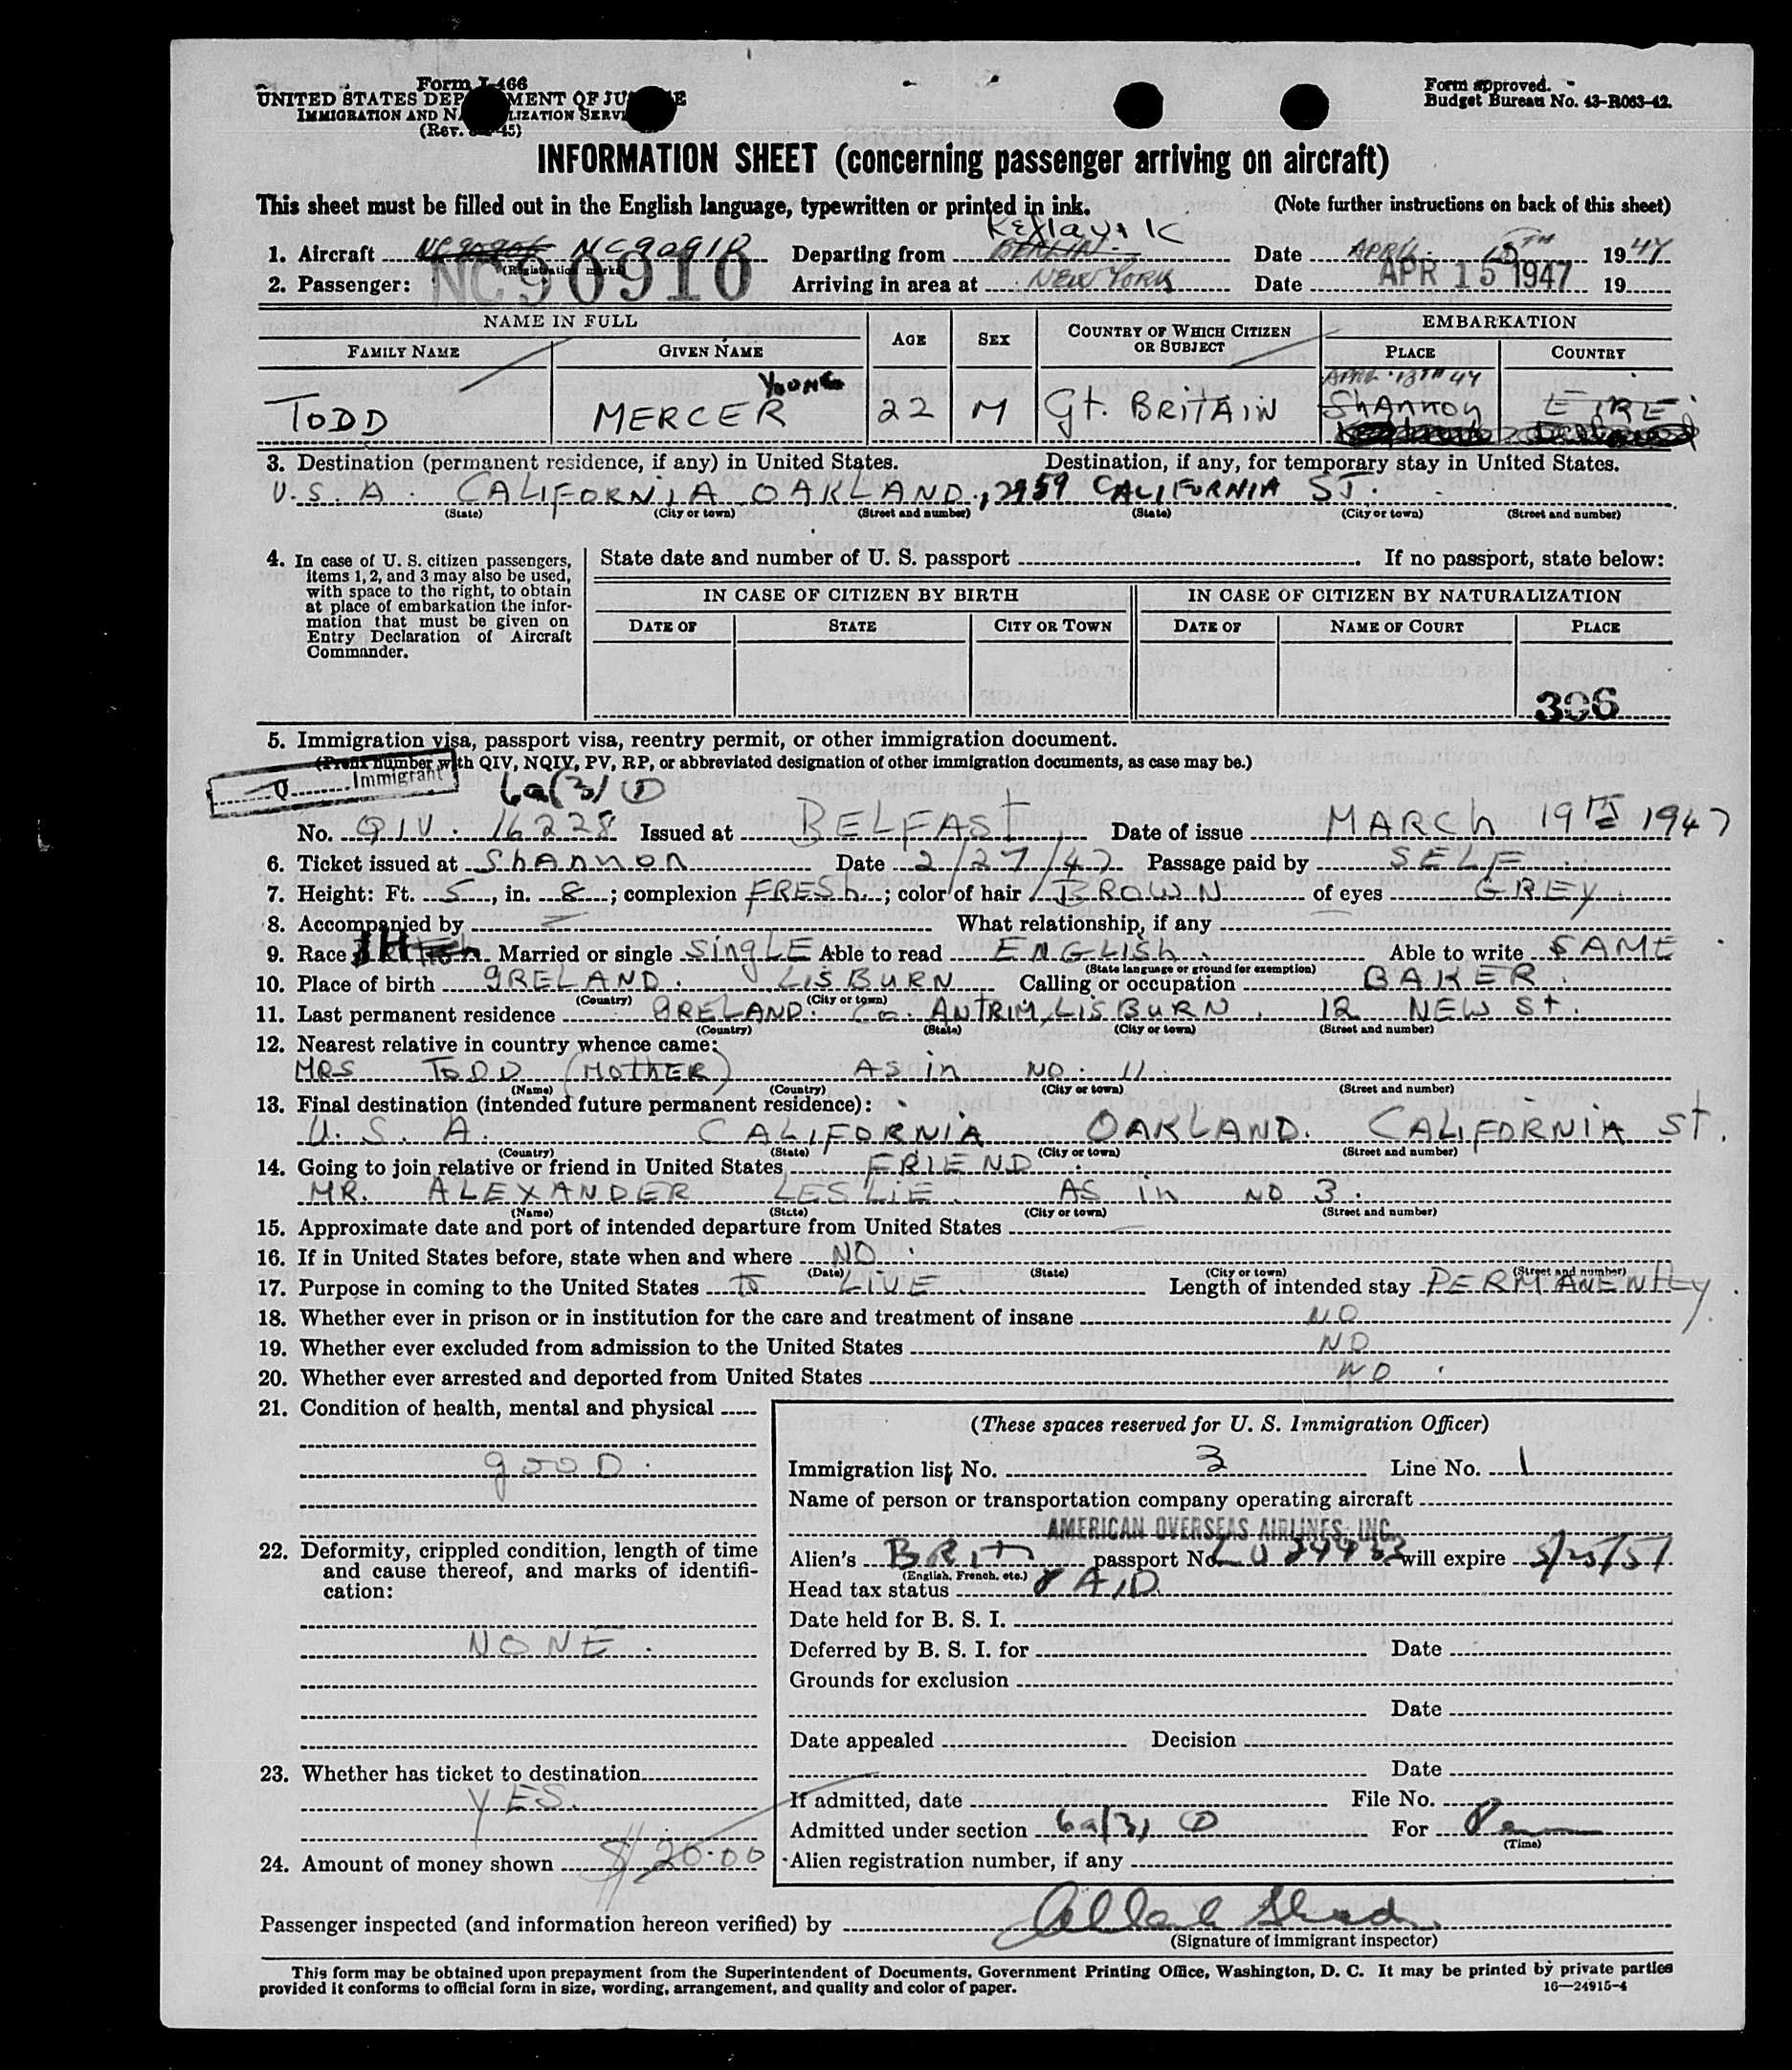 Form I-466
UNITED STATES DEPARTMENT OF JUSTICE
IMMIGRATION AND NATURALIZATION SERVICE
(Rev. -45)
Form approved.
Budget Bureau No. 43-R063-42.
INFORMATION SHEET (concerning passenger arriving on aircraft)
This sheet must be filled out in the English language, typewritten or printed in ink. (Note further instructions on back of this sheet)
Keflavik
1. Aircraft NC90910 Departing from BERLIN Date APRIL 15TH 1947
(Registration marks)
2. Passenger: NC90910 Arriving in area at NEW YORK Date APR 15 1947 19
NAME IN FULL AGE SEX COUNTRY OF WHICH CITIZEN OR SUBJECT EMBARKATION
FAMILY NAME GIVEN NAME PLACE COUNTRY
YOUNG APRIL 13TH 47
TODD MERCER 22 M Gt. BRITAIN ShANNON EIRE
3. Destination (permanent residence, if any) in United States. Destination, if any, for temporary stay in United States.
U.S.A. CALIFORNIA OAKLAND., 2959 CALIFORNIA ST.
(State) (City or town) (Street and number) (State) (City or town) (Street and number)
4. In case of U. S. citizen passengers, items 1, 2, and 3 may also be used, with space to the right, to obtain at place of embarkation the information that must be given on Entry Declaration of Aircraft Commander.
State date and number of U. S. passport If no passport, state below:
IN CASE OF CITIZEN BY BIRTH IN CASE OF CITIZEN BY NATURALIZATION
DATE OF STATE CITY OR TOWN DATE OF NAME OF COURT PLACE
306
5. Immigration visa, passport visa, reentry permit, or other immigration document.
(Prefix number with QIV, NQIV, PV, RP, or abbreviated designation of other immigration documents, as case may be.)
Q Immigrant
6a(3) ①
No. QIV. 16228 Issued at BELFAST Date of issue MARCh 19TH 1947
6. Ticket issued at ShANNON Date 2/27/47 Passage paid by SELF
7. Height: Ft. 5, in. 8; complexion FRESh.; color of hair BROWN of eyes GREY.
8. Accompanied by What relationship, if any
9. Race Married or single SinglE Able to read ENGLISh. Able to write SAME
(State language or ground for exemption)
10. Place of birth IRELAND. LISBURN Calling or occupation BAKER.
(Country) (City or town)
11. Last permanent residence IRELAND. Co. ANTRIM, LISBURN. 12 NEW St.
(Country) (State) (City or town) (Street and number)
12. Nearest relative in country whence came:
MRS TODD (MOTHER) AS in NO. 11.
(Name) (Country) (City or town) (Street and number)
13. Final destination (intended future permanent residence):
U.S.A. CALIFORNIA OAKLAND. CALIFORNIA St.
(Country) (State) (City or town) (Street and number)
14. Going to join relative or friend in United States FRIEND
MR. ALEXANDER LESLIE. AS in NO 3.
(Name) (State) (City or town) (Street and number)
15. Approximate date and port of intended departure from United States
16. If in United States before, state when and where NO.
(Date) (State) (City or town) (Street and number)
17. Purpose in coming to the United States TO LIVE Length of intended stay PERMANENtly.
18. Whether ever in prison or in institution for the care and treatment of insane NO
19. Whether ever excluded from admission to the United States NO
20. Whether ever arrested and deported from United States NO
21. Condition of health, mental and physical
gooD.
22. Deformity, crippled condition, length of time and cause thereof, and marks of identification:
NONE.
23. Whether has ticket to destination
YES.
24. Amount of money shown $ 20.00
(These spaces reserved for U. S. Immigration Officer)
Immigration list No. 3 Line No. 1
Name of person or transportation company operating aircraft
AMERICAN OVERSEAS AIRLINES, INC.
Alien's BRIT passport No. will expire 5/25/51
(English, French, etc.)
Head tax status PAID
Date held for B. S. I.
Deferred by B. S. I. for Date
Grounds for exclusion
Date
Date appealed Decision
Date
If admitted, date File No.
Admitted under section 6a(3) ① For Perm
(Time)
Alien registration number, if any
Passenger inspected (and information hereon verified) by
(Signature of immigrant inspector)
This form may be obtained upon prepayment from the Superintendent of Documents, Government Printing Office, Washington, D. C. It may be printed by private parties
provided it conforms to official form in size, wording, arrangement, and quality and color of paper. 16—24915-4